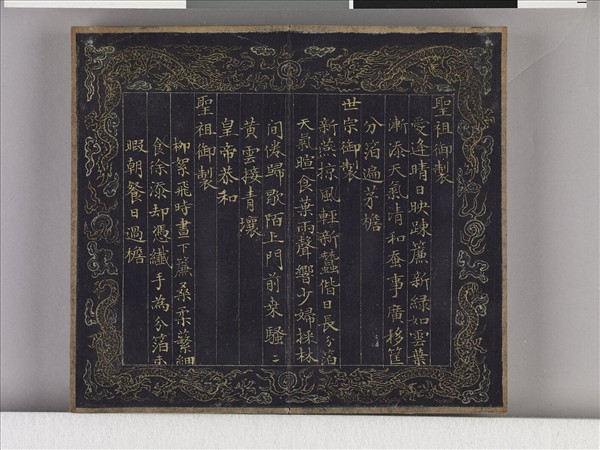 聖祖御製
愛逢晴日映踈簾新綠如雲葉
漸添天氣清和蚕事廣移筐
分箔遍茅檐
世宗御製
新燕掠風輕新蠶偕日長分箔
天氣暄食葉雨聲響少婦採林
間倦歸歇陌上門前桒騷〻
黃雲接青壤
皇帝恭和
聖祖御製
柳絮飛時晝下簾桑柔蘩細
食徐添却憑纖手為分箔未
暇朝餐日過檐